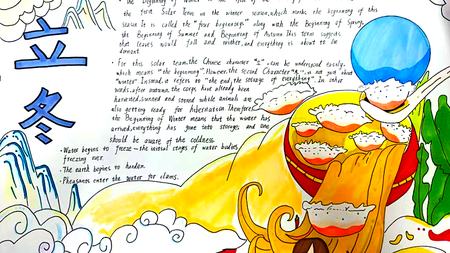 立冬
the first Solar Term in the winter season, which marks the beginning of this
season. It is called the "four beginnings" along with the Beginning of Spring,
the Beginning of Summer and Beginning of Autumn. This term suggests
that leaves would fall and wither, and everything is about to be
dormant.
· For this solar term, the Chinese character "立" can be understood easily,
which means "the beginning". However, the second Character "冬" is not just about
"winter". Instead, it refers to "the end, the storage of everything". In other
words, after autumn, the crops have already been
harvested, sunned and stored while animals are
also getting ready for hibernation. Therefore,
the Beginning of Winter means that the winter has
arrived, everything has gone into storage, and one
should be aware of the coldness.
· Water begins to freeze — the initial stages of water bodies
freezing over.
· The earth begins to harden.
· Pheasants enter the water for clams.